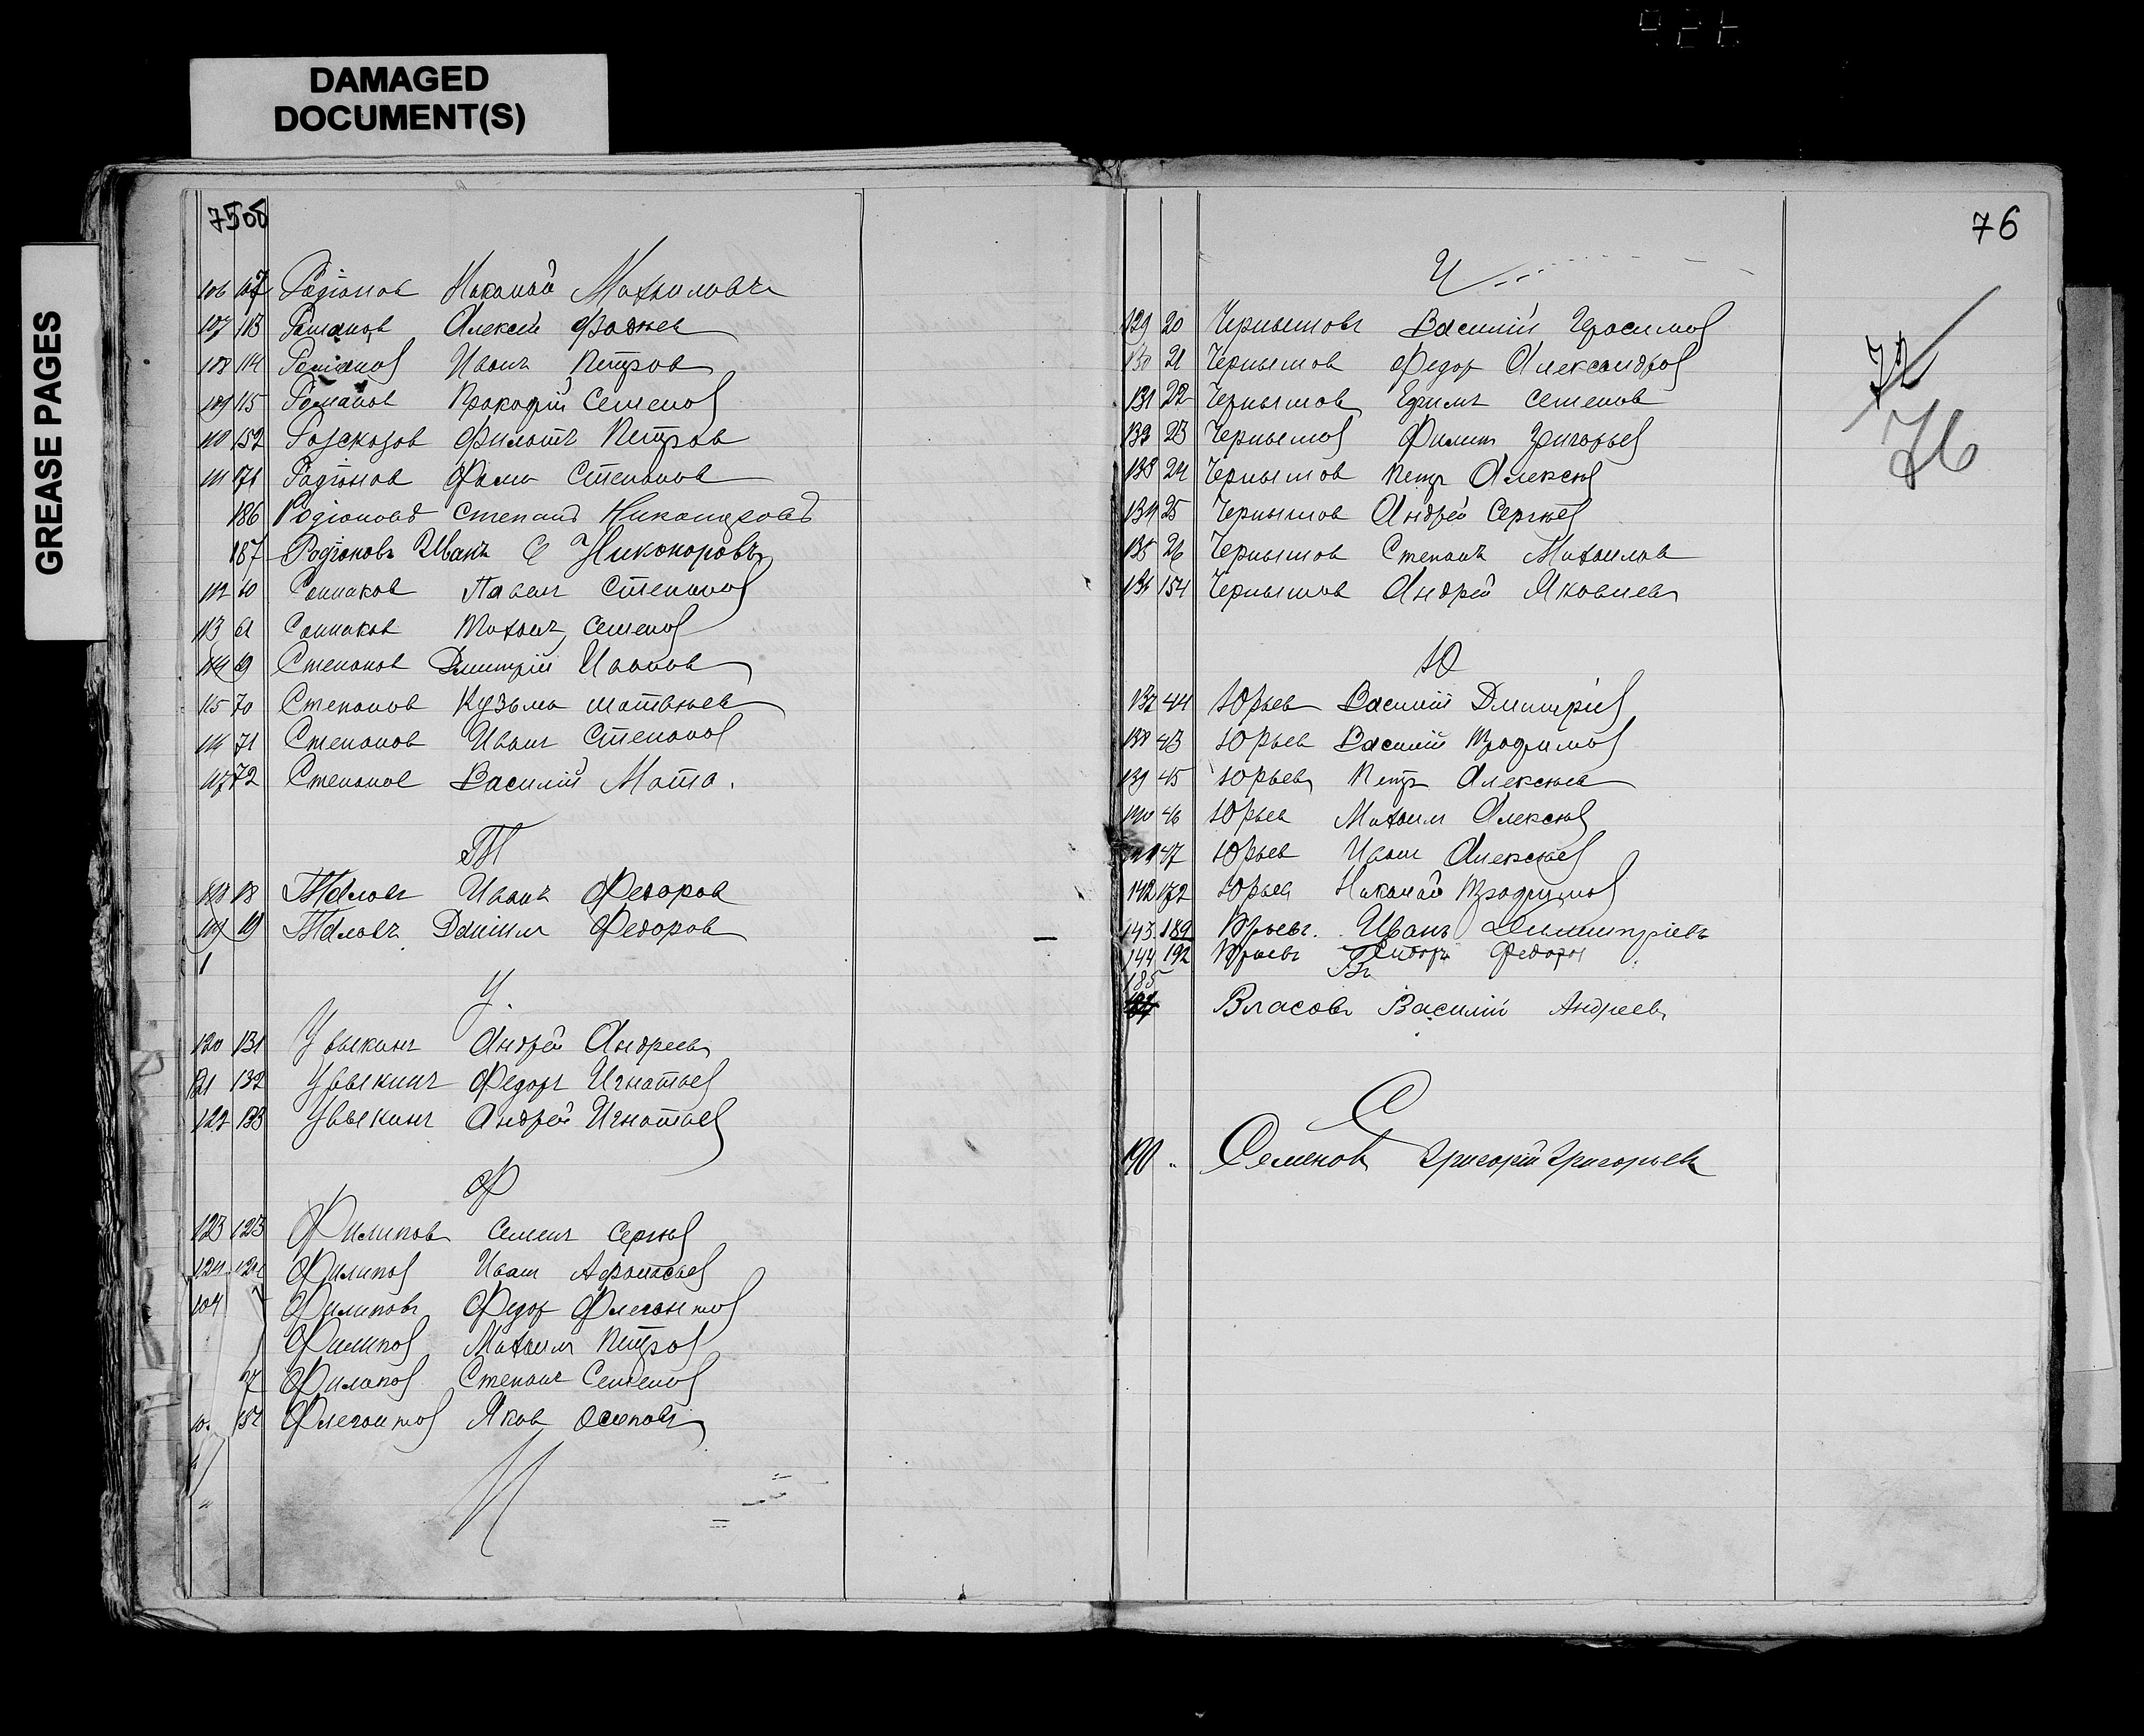 DAMAGED
DOCUMENT(S)
GREASE PAGES
75об
106 107 Радіонов Николай Михаиловъ
107 113 Романов Алексей Фадеев
108 114 Романов Иванъ Петров
109 115 Романов Прокофій Семенов
110 152 Розсказов Филатъ Петров
111 171 Радіонов Фома Степанов
186 Родіоновъ Степанъ Никаноровъ
187 Родіоновъ Иванъ Никоноровъ
112 60 Сошаков Павелъ Степанов
113 61 Сошаков Михаилъ Семенов
114 69 Степанов Дмитрій Иванов
115 70 Степанов Кузьма Матвѣев
116 71 Степанов Иванъ Степанов
117 72 Степанов Василій
Т
118 18 Иванъ Федоров
119 19 Данилъ Федоров
У
120 131 Увыкинъ Андрей Андреев
121 132 Увыкинъ Федоръ Игнатьев
122 133 Увыкинъ Андрей Игнатьев
Ф
123 123 Филипов Семенъ Сергѣев
124 124 Филипов Иван Афонасьев
104 Филиповъ Федор Флегонтов
Филипов Михаилъ Петров
Филипов Степанъ Семенов
Флегонтов Яков Осиповъ
76
Ч
129 20 Чернышовъ Василій Герасимов
130 21 Чернышов Федор Александров
131 22 Чернышов Ефимъ Семенов
132 23 Чернышов Филип Григорьев
133 24 Чернышов Петр Алексѣев
134 25 Чернышов Андрей Сергѣев
135 26 Чернышов Степанъ Михаилов
136 154 Чернышов Андрей Яковлев
72
76
Ю
137 44 Юрьев Василій Дмитріев
138 43 Юрьев Василій Трофимов
139 45 Юрьев Петръ Алексѣев
140 46 Юрьев Михаил Алексѣев
141 47 Юрьев Иван Алексѣев
142 172 Юрьев Николай Трофимов
143 189 Юрьевъ Иванъ Димитріевъ
144 192 Юрьевъ Федоров
185
Власовъ Василій Андреев
С
190 Семенов Григорій Григорьев